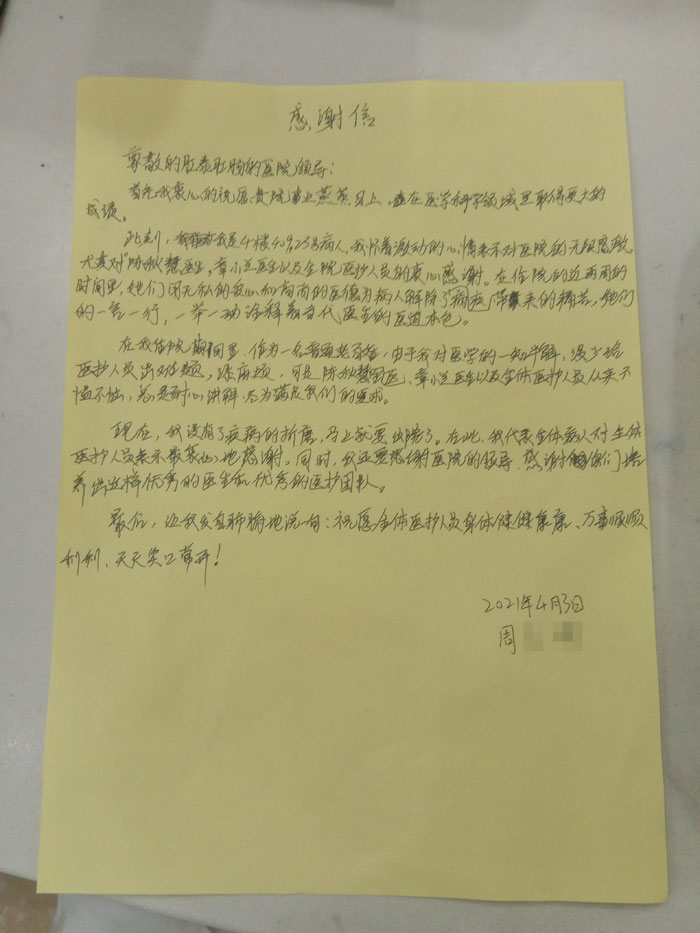 感谢信
尊敬的肛泰肛肠的医院领导：
首先，我衷心的祝愿贵院事业蒸蒸日上，在医学科学领域里取得更大的
成绩。
此刻，我是4楼402 25号病人，我怀着激动的心情表示对医院的无限感激。
尤其对陈秋慧医生，章小兰医生以及全院医护人员的衷心感谢。在住院的近两周的
时间里，她们用无私的爱心和高尚的医德为病人解除了病疾带来的痛苦，她们
的一言一行，一举一动诠释着当代医生的医道本色。
在我住院期间里，作为一名普通老百姓，由于我对医学的一知半解，没少给
医护人员出难题，添麻烦，可是陈秋慧医、章小兰医生以及全体医护人员从来不
愠不恼，总是耐心讲解，尽力满足我们的要求。
现在，我没有了疾病的折磨，马上就要出院了。在此，我代表全体病人对全体
医护人员表示最衷心地感谢。同时，我还要感谢医院的领导，感谢你们培
养出这样优秀的医生和优秀的医护团队。
最后，让我发自肺腑地说一句：祝愿全体医护人员身体健健康康、万事顺顺
利利、天天笑口常开！
2021年4月3日
周